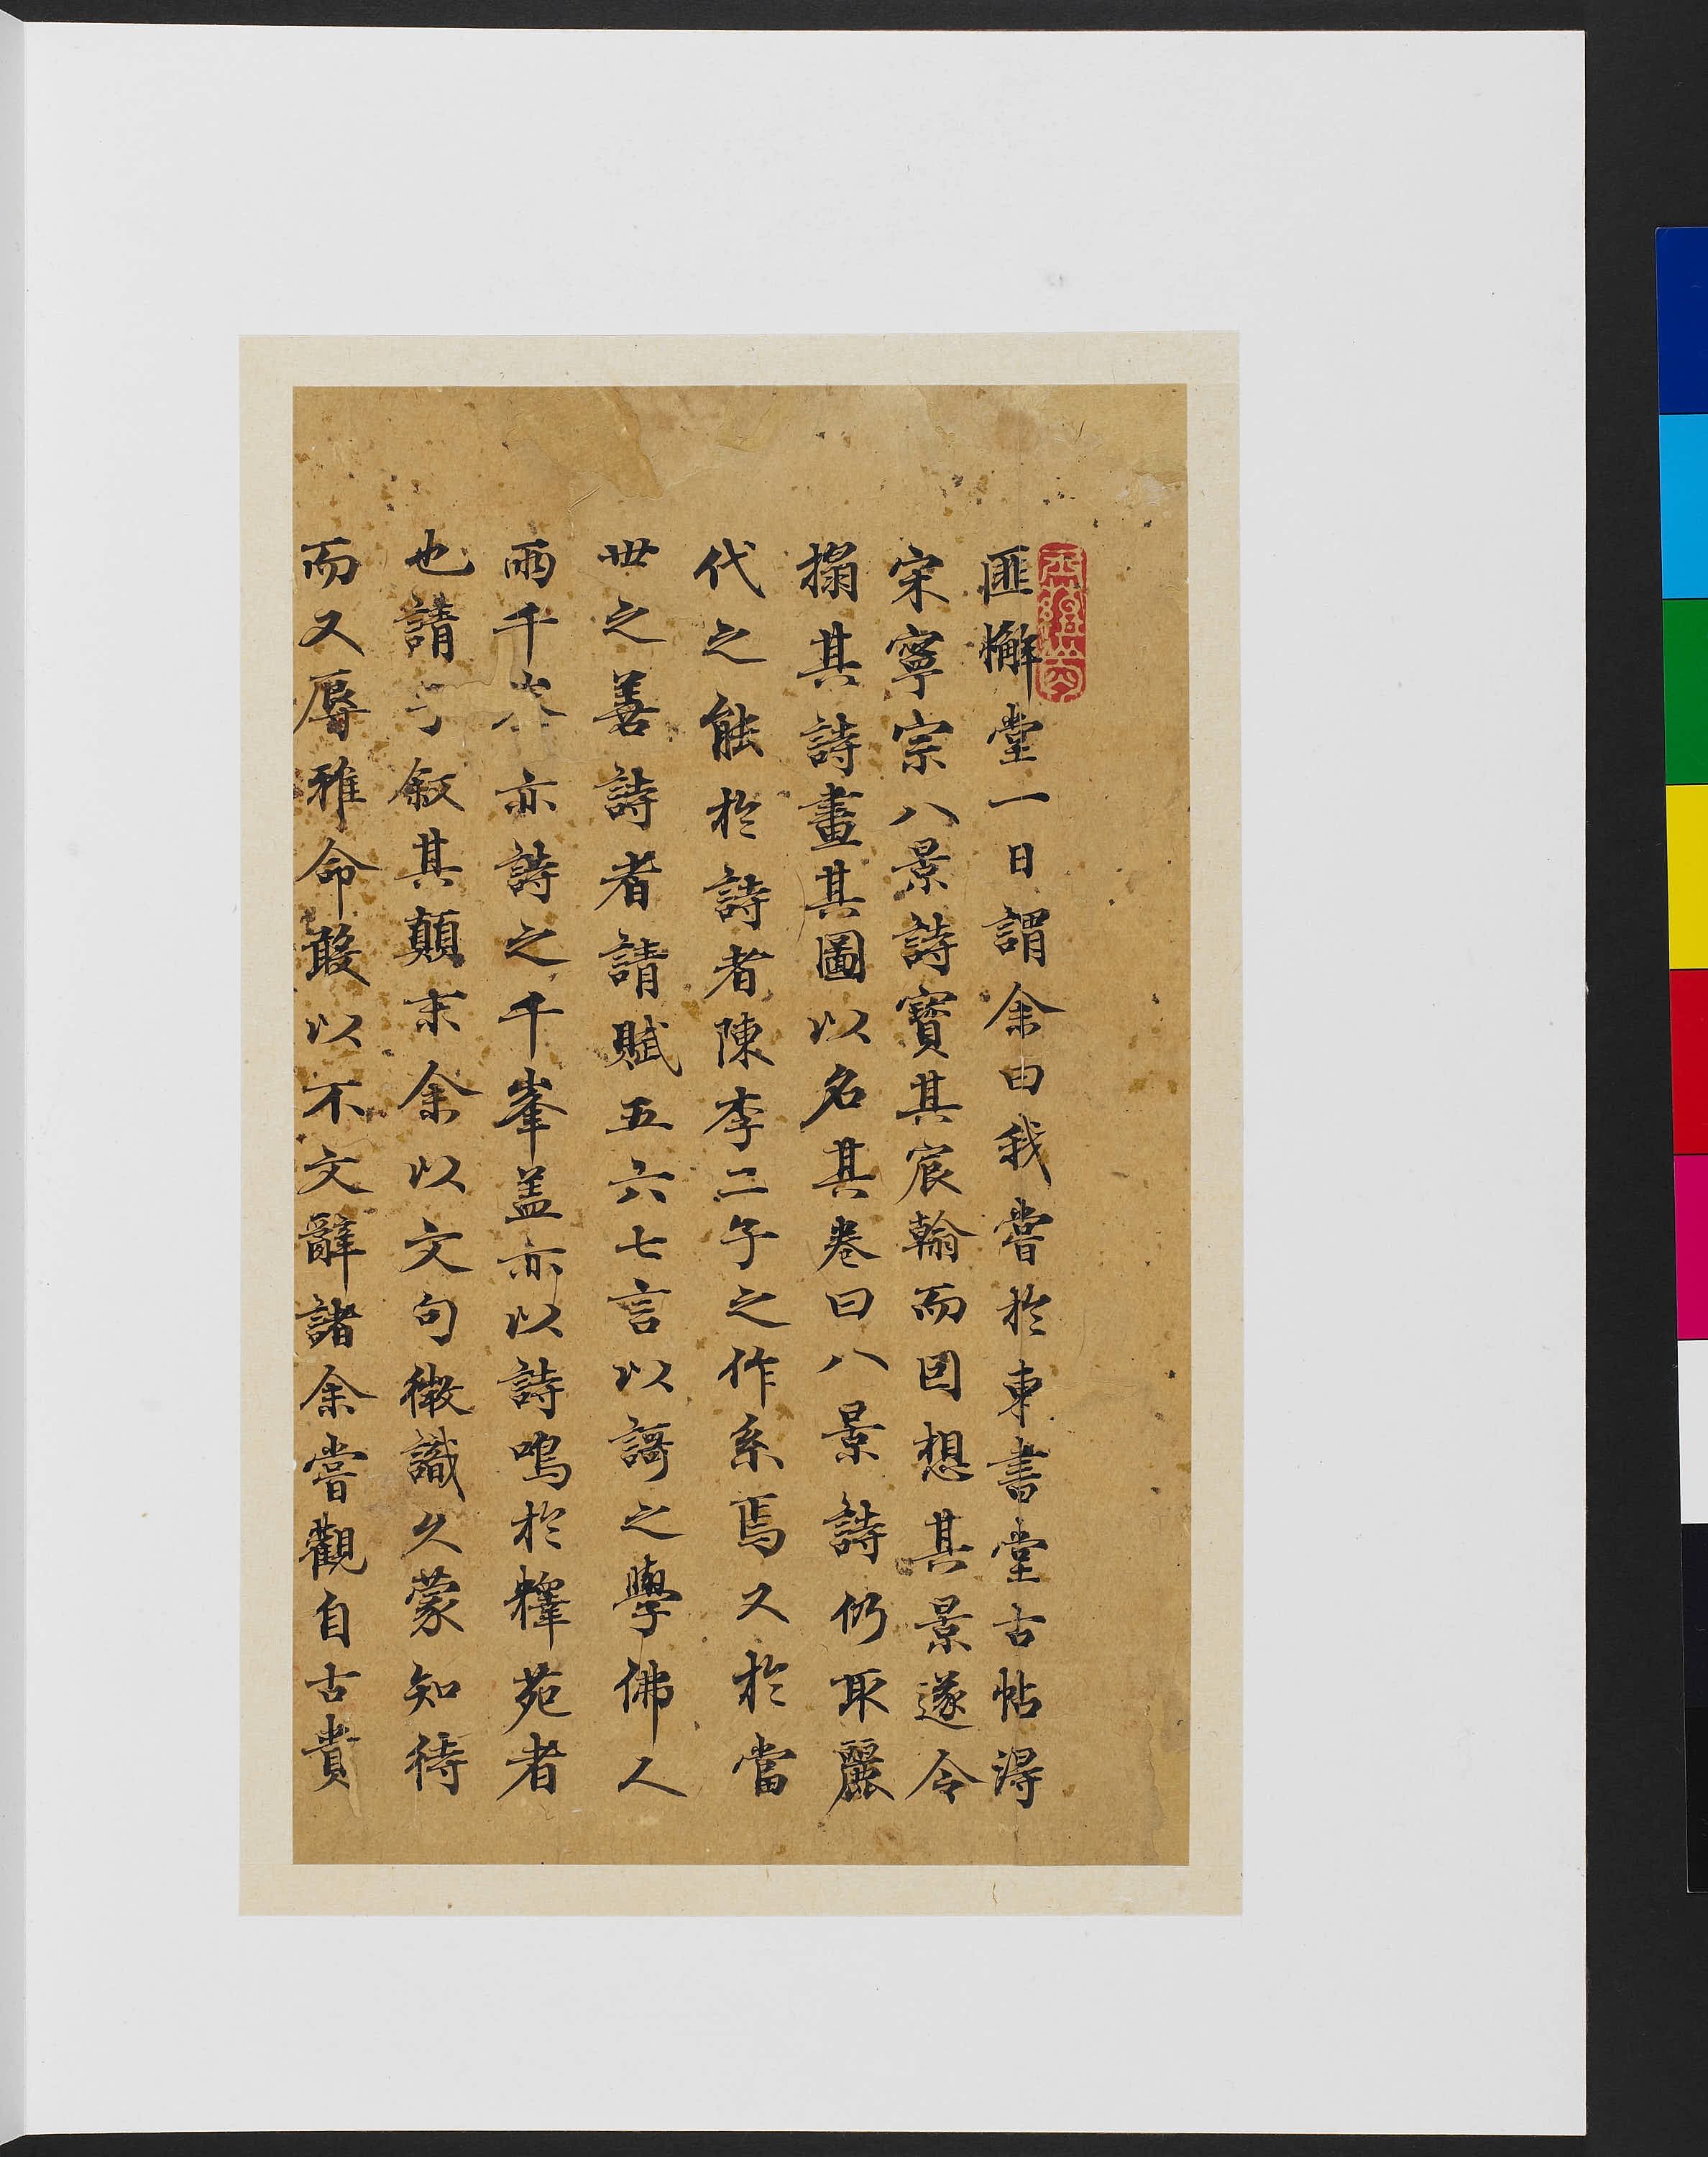 匪懈堂一日謂余曰我嘗於東書堂古帖得
宋寧宗八景詩寶其宸翰而因想其景遂令
搨其詩畫其圖以名其卷曰八景詩仍取麗
代之能於詩者陳李二子之作系焉又於當
世之善詩者請賦五六七言以謌之學佛人
雨千峯亦詩之千峯盖亦以詩鳴於釋苑者
也請予叙其顛末余以文句徵識久蒙知待
而又辱雅命敢以不文辭諸余嘗觀自古貴